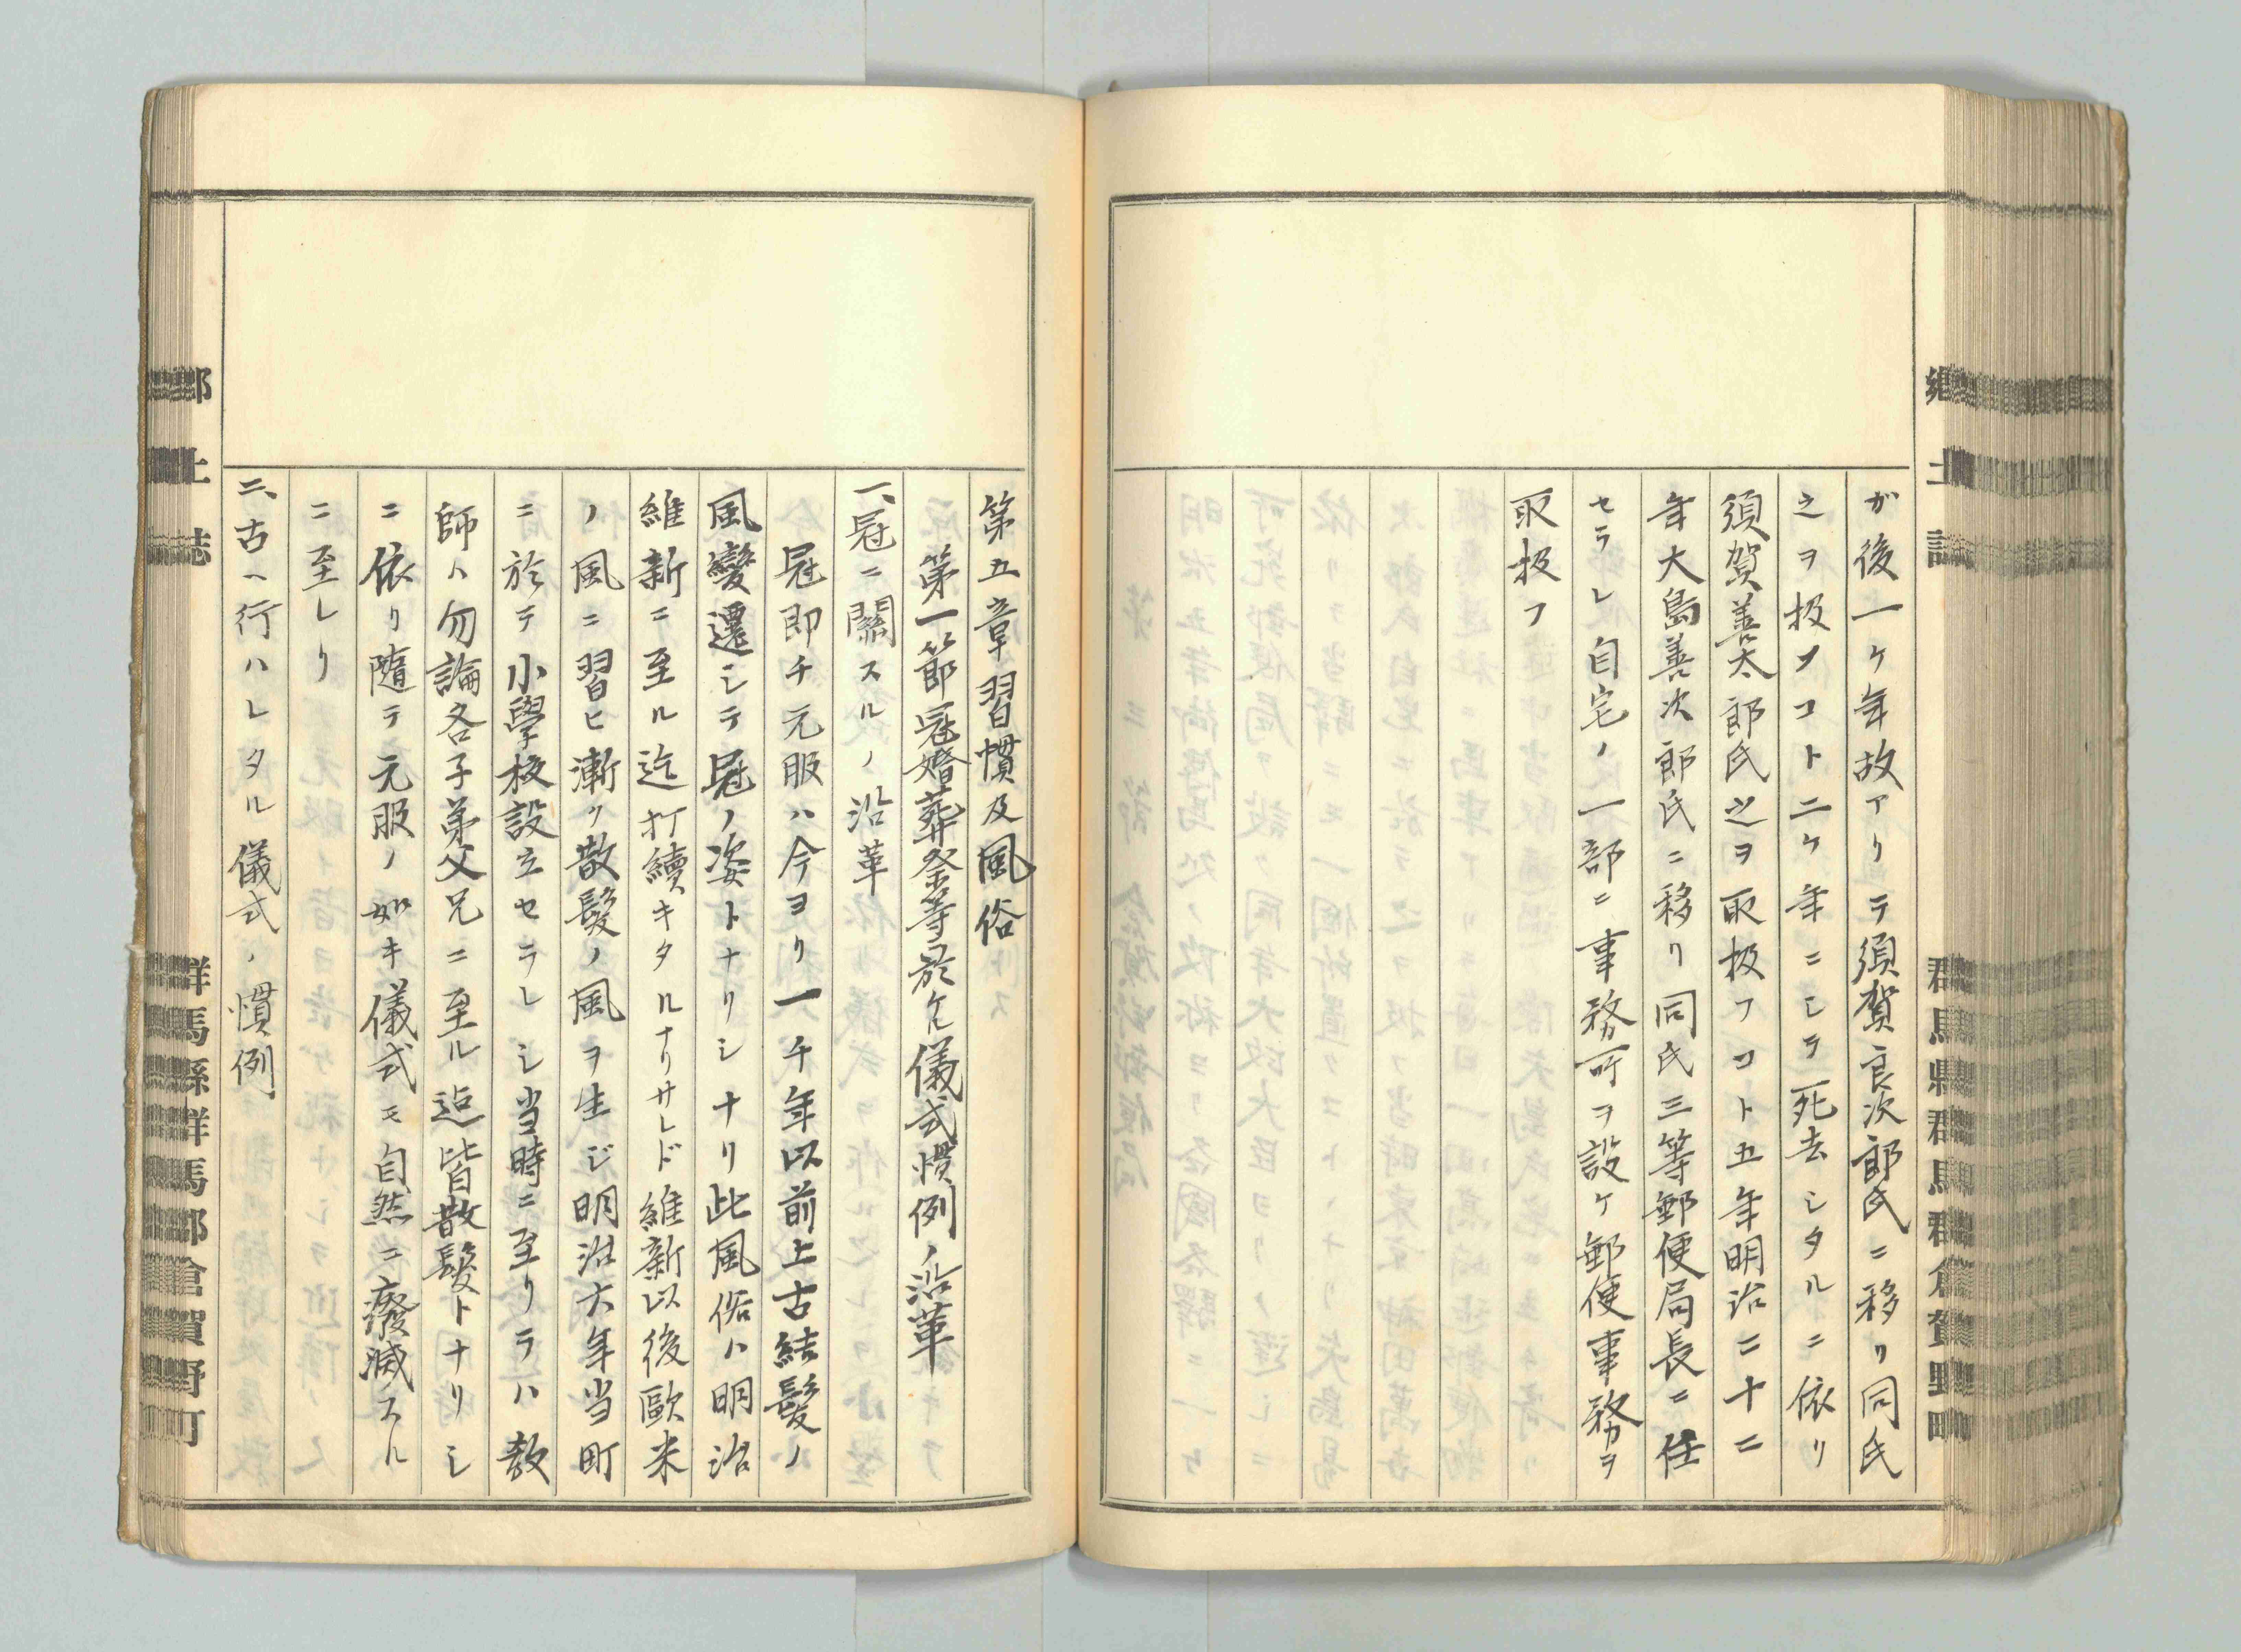 郷土誌
群馬県群馬郡倉賀野町
ガ後一ケ年故アリテ須賀良次郎氏ニ移リ同氏
之ヲ扱フコト二ケ年ニシテ死去シタルニ依リ
須賀善太郎氏之ヲ取扱フコト五年明治二十二
年大島善次郎氏ニ移リ同氏三等郵便局長ニ任
セラレ自宅ノ一部ニ事務所ヲ設ケ郵便事務ヲ
取扱フ
第五章習慣及風俗
第一節冠婚葬祭等ニ於ケル儀式慣例ノ沿革
一、冠ニ關スルノ沿革
冠即チ元服ハ今ヨリ一千年以前上古結髪ノ
風變遷シテ冠ノ姿トナリシナリ此風俗ハ明治
維新ニ至ル迄打續キタルナリサレド維新以後歐米
ノ風ニ習ヒ漸ク散髪ノ風ヲ生ジ明治六年当町
ニ於テ小學校設立セラレシ当時ニ至リテハ教
師ハ勿論各子弟父兄ニ至ル迄皆散髪トナリシ
ニ依リ隨テ元服ノ如キ儀式モ自然ニ癈滅スル
ニ至レリ
二、古ヘ行ハレタル儀式ノ慣例
郷土誌
群馬縣群馬郡倉賀野町